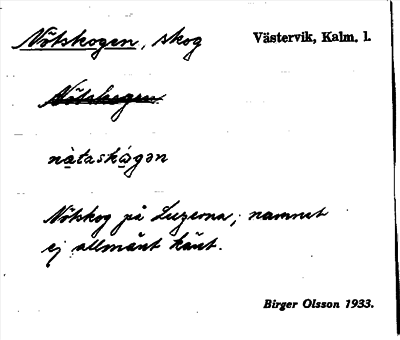 Nötskogen, skog Västervik, Kalm. l.
Nötskogen
nὰtaskɷ́gən
Nötskog på Luzerna; namnet
ej allmänt känt.
Birger Olsson 1933.